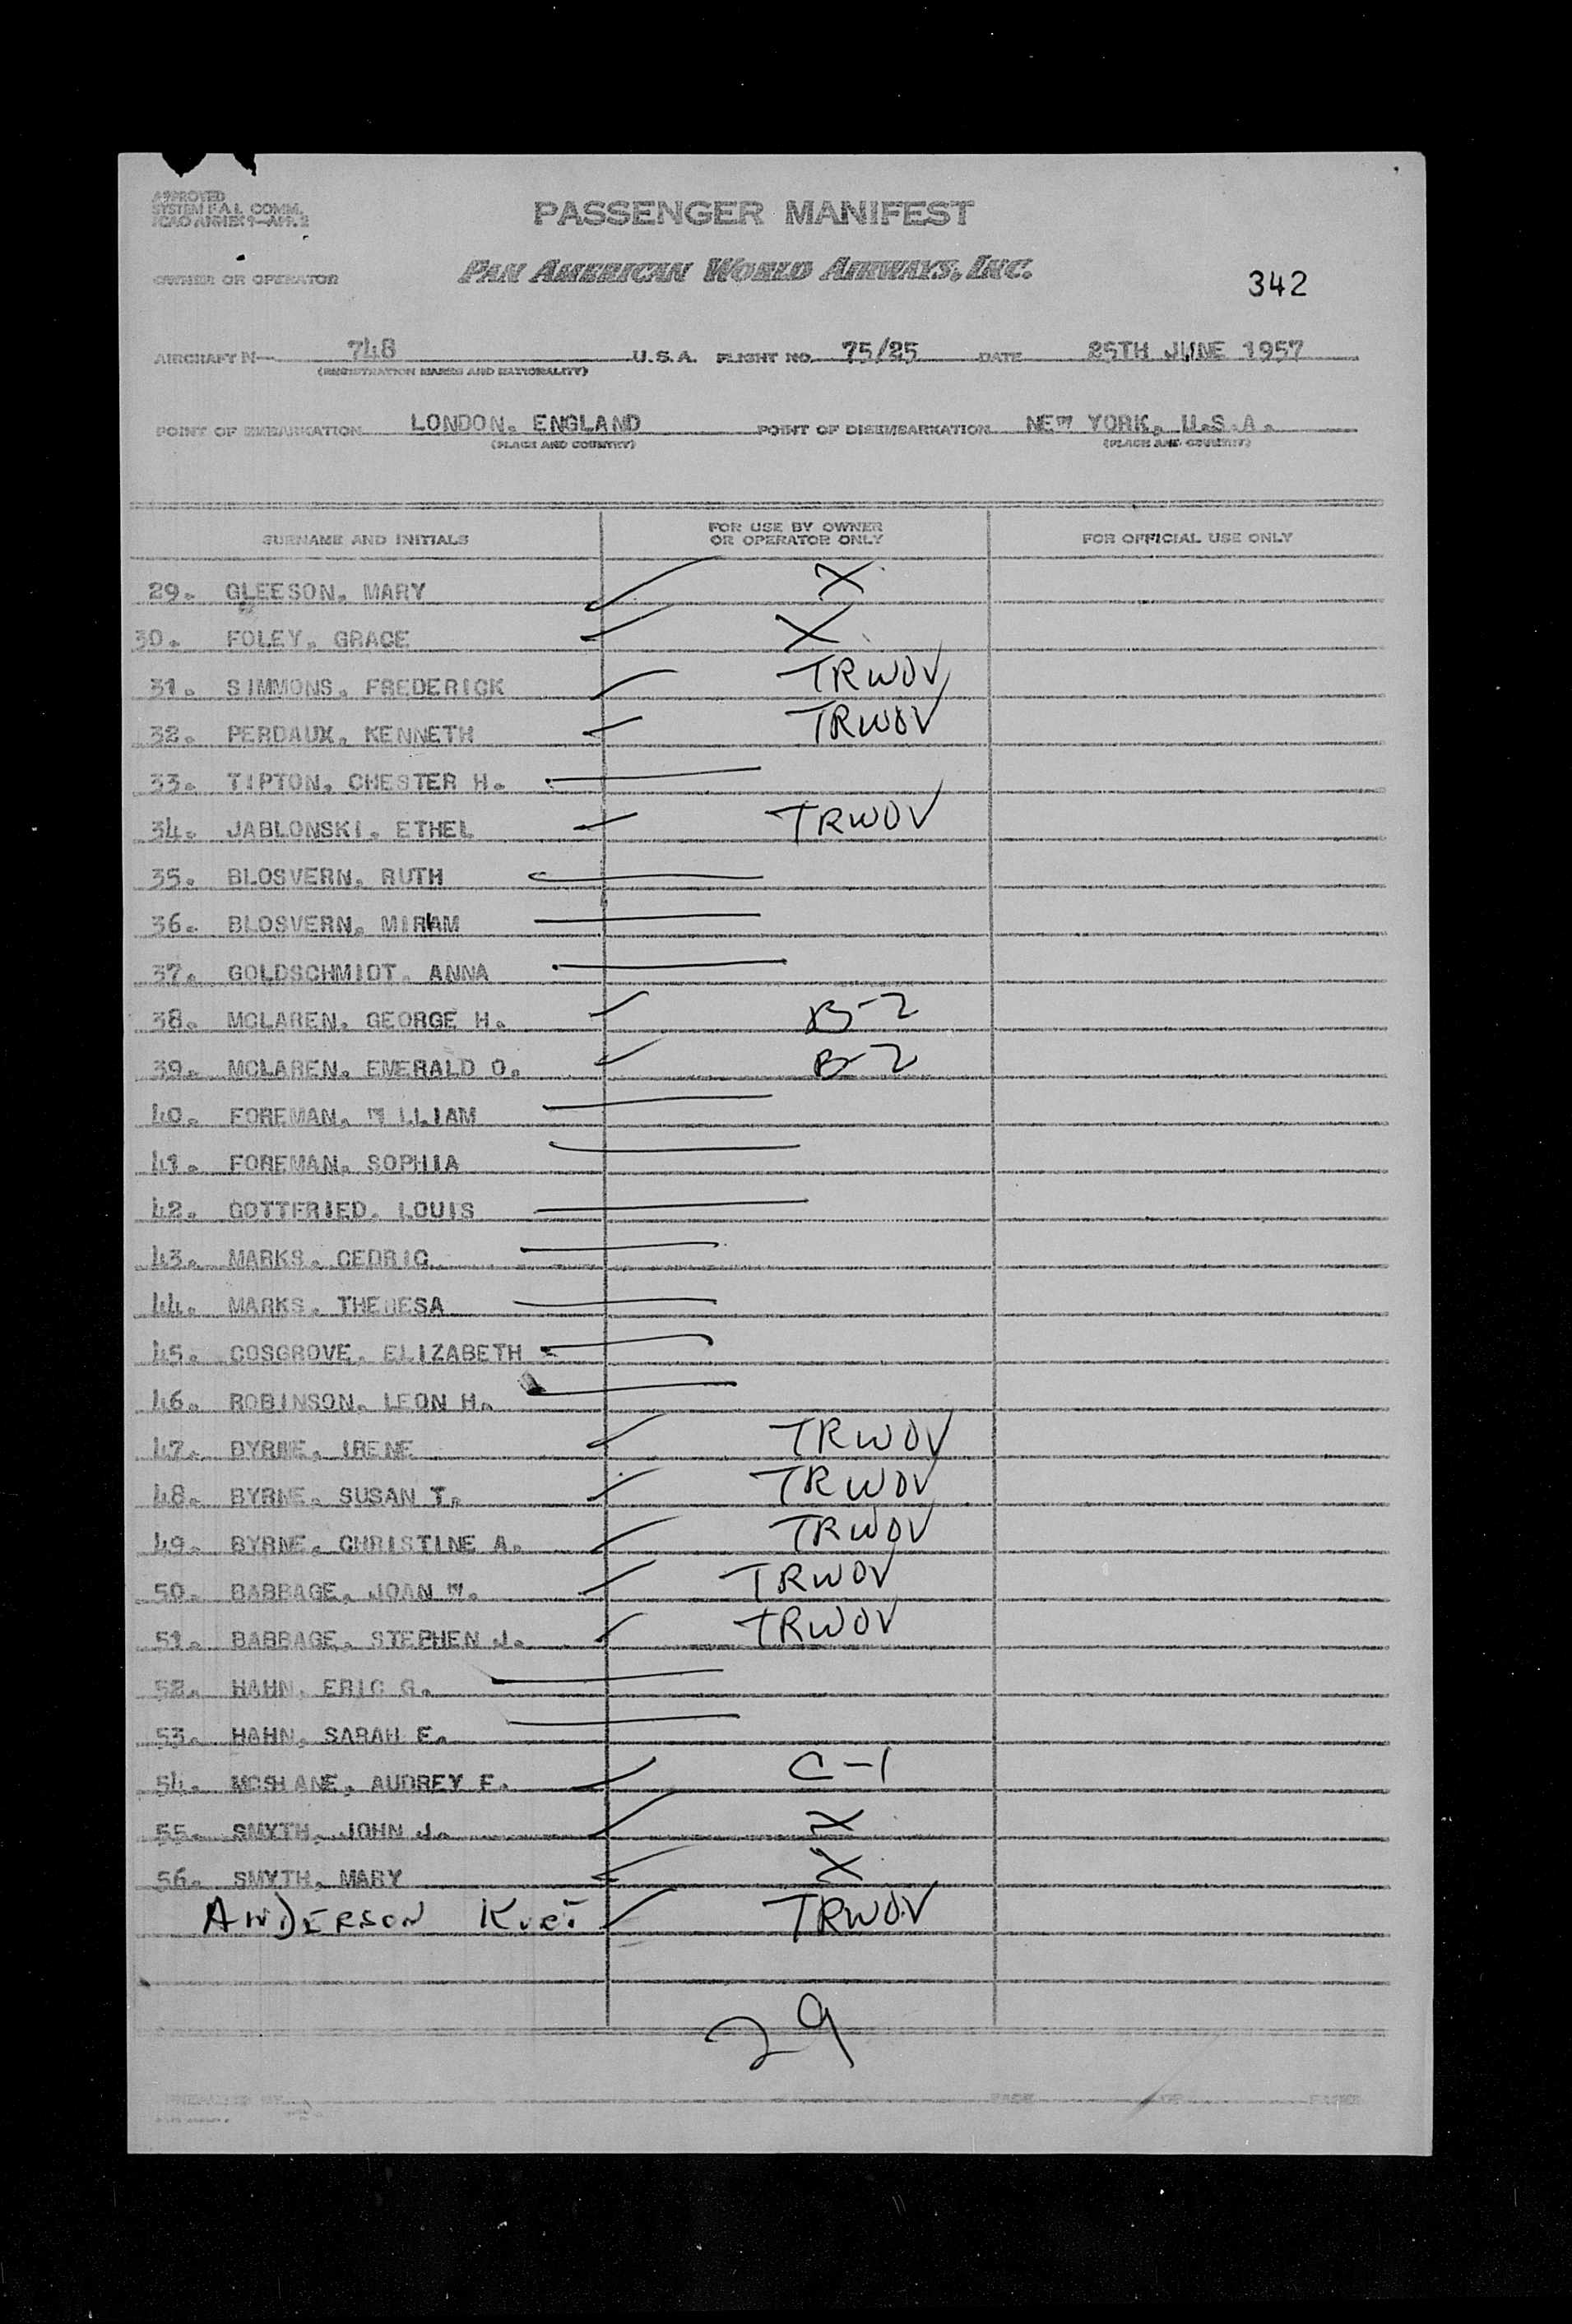 APPROVED
SYSTEM F.A.L. COMM.
ICAO ANNEX 9—APP. 2
PASSENGER MANIFEST
OWNER OR OPERATOR PAN AMERICAN WORLD AIRWAYS, INC.
342
AIRCRAFT N— 748 U.S.A. FLIGHT NO. 75/25 DATE 25TH JUNE 1957
(REGISTRATION MARKS AND NATIONALITY)
POINT OF EMBARKATION LONDON, ENGLAND POINT OF DISEMBARKATION NEW YORK, U.S.A.
(PLACE AND COUNTRY) (PLACE AND COUNTRY)
SURNAME AND INITIALS FOR USE BY OWNER OR OPERATOR ONLY FOR OFFICIAL USE ONLY
29. GLEESON, MARY X
30. FOLEY, GRACE X
31. SIMMONS, FREDERICK TRWOV
32. PERDAUX, KENNETH TRWOV
33. TIPTON, CHESTER H.
34. JABLONSKI, ETHEL TRWOV
35. BLOSVERN, RUTH
36. BLOSVERN, MIRIAM
37. GOLDSCHMIDT, ANNA
38. MCLAREN, GEORGE H. B-2
39. MCLAREN, EMERALD O. B-2
40. FOREMAN, WILLIAM
41. FOREMAN, SOPHIA
42. GOTTFRIED, LOUIS
43. MARKS, CEDRIC
44. MARKS, THERESA
45. COSGROVE, ELIZABETH
46. ROBINSON, LEON H.
47. BYRNE, IRENE TRWOV
48. BYRNE, SUSAN T. TRWOV
49. BYRNE, CHRISTINE A. TRWOV
50. BABBAGE, JOAN W. TRWOV
51. BABBAGE, STEPHEN J. TRWOV
52. HAHN, ERIC G.
53. HAHN, SARAH E.
54. MCSHANE, AUDREY E. C-1
55. SMYTH, JOHN J. X
56. SMYTH, MARY X
ANDERSON Kurt TRWOV
29
PREPARED BY PAGE OF PAGES